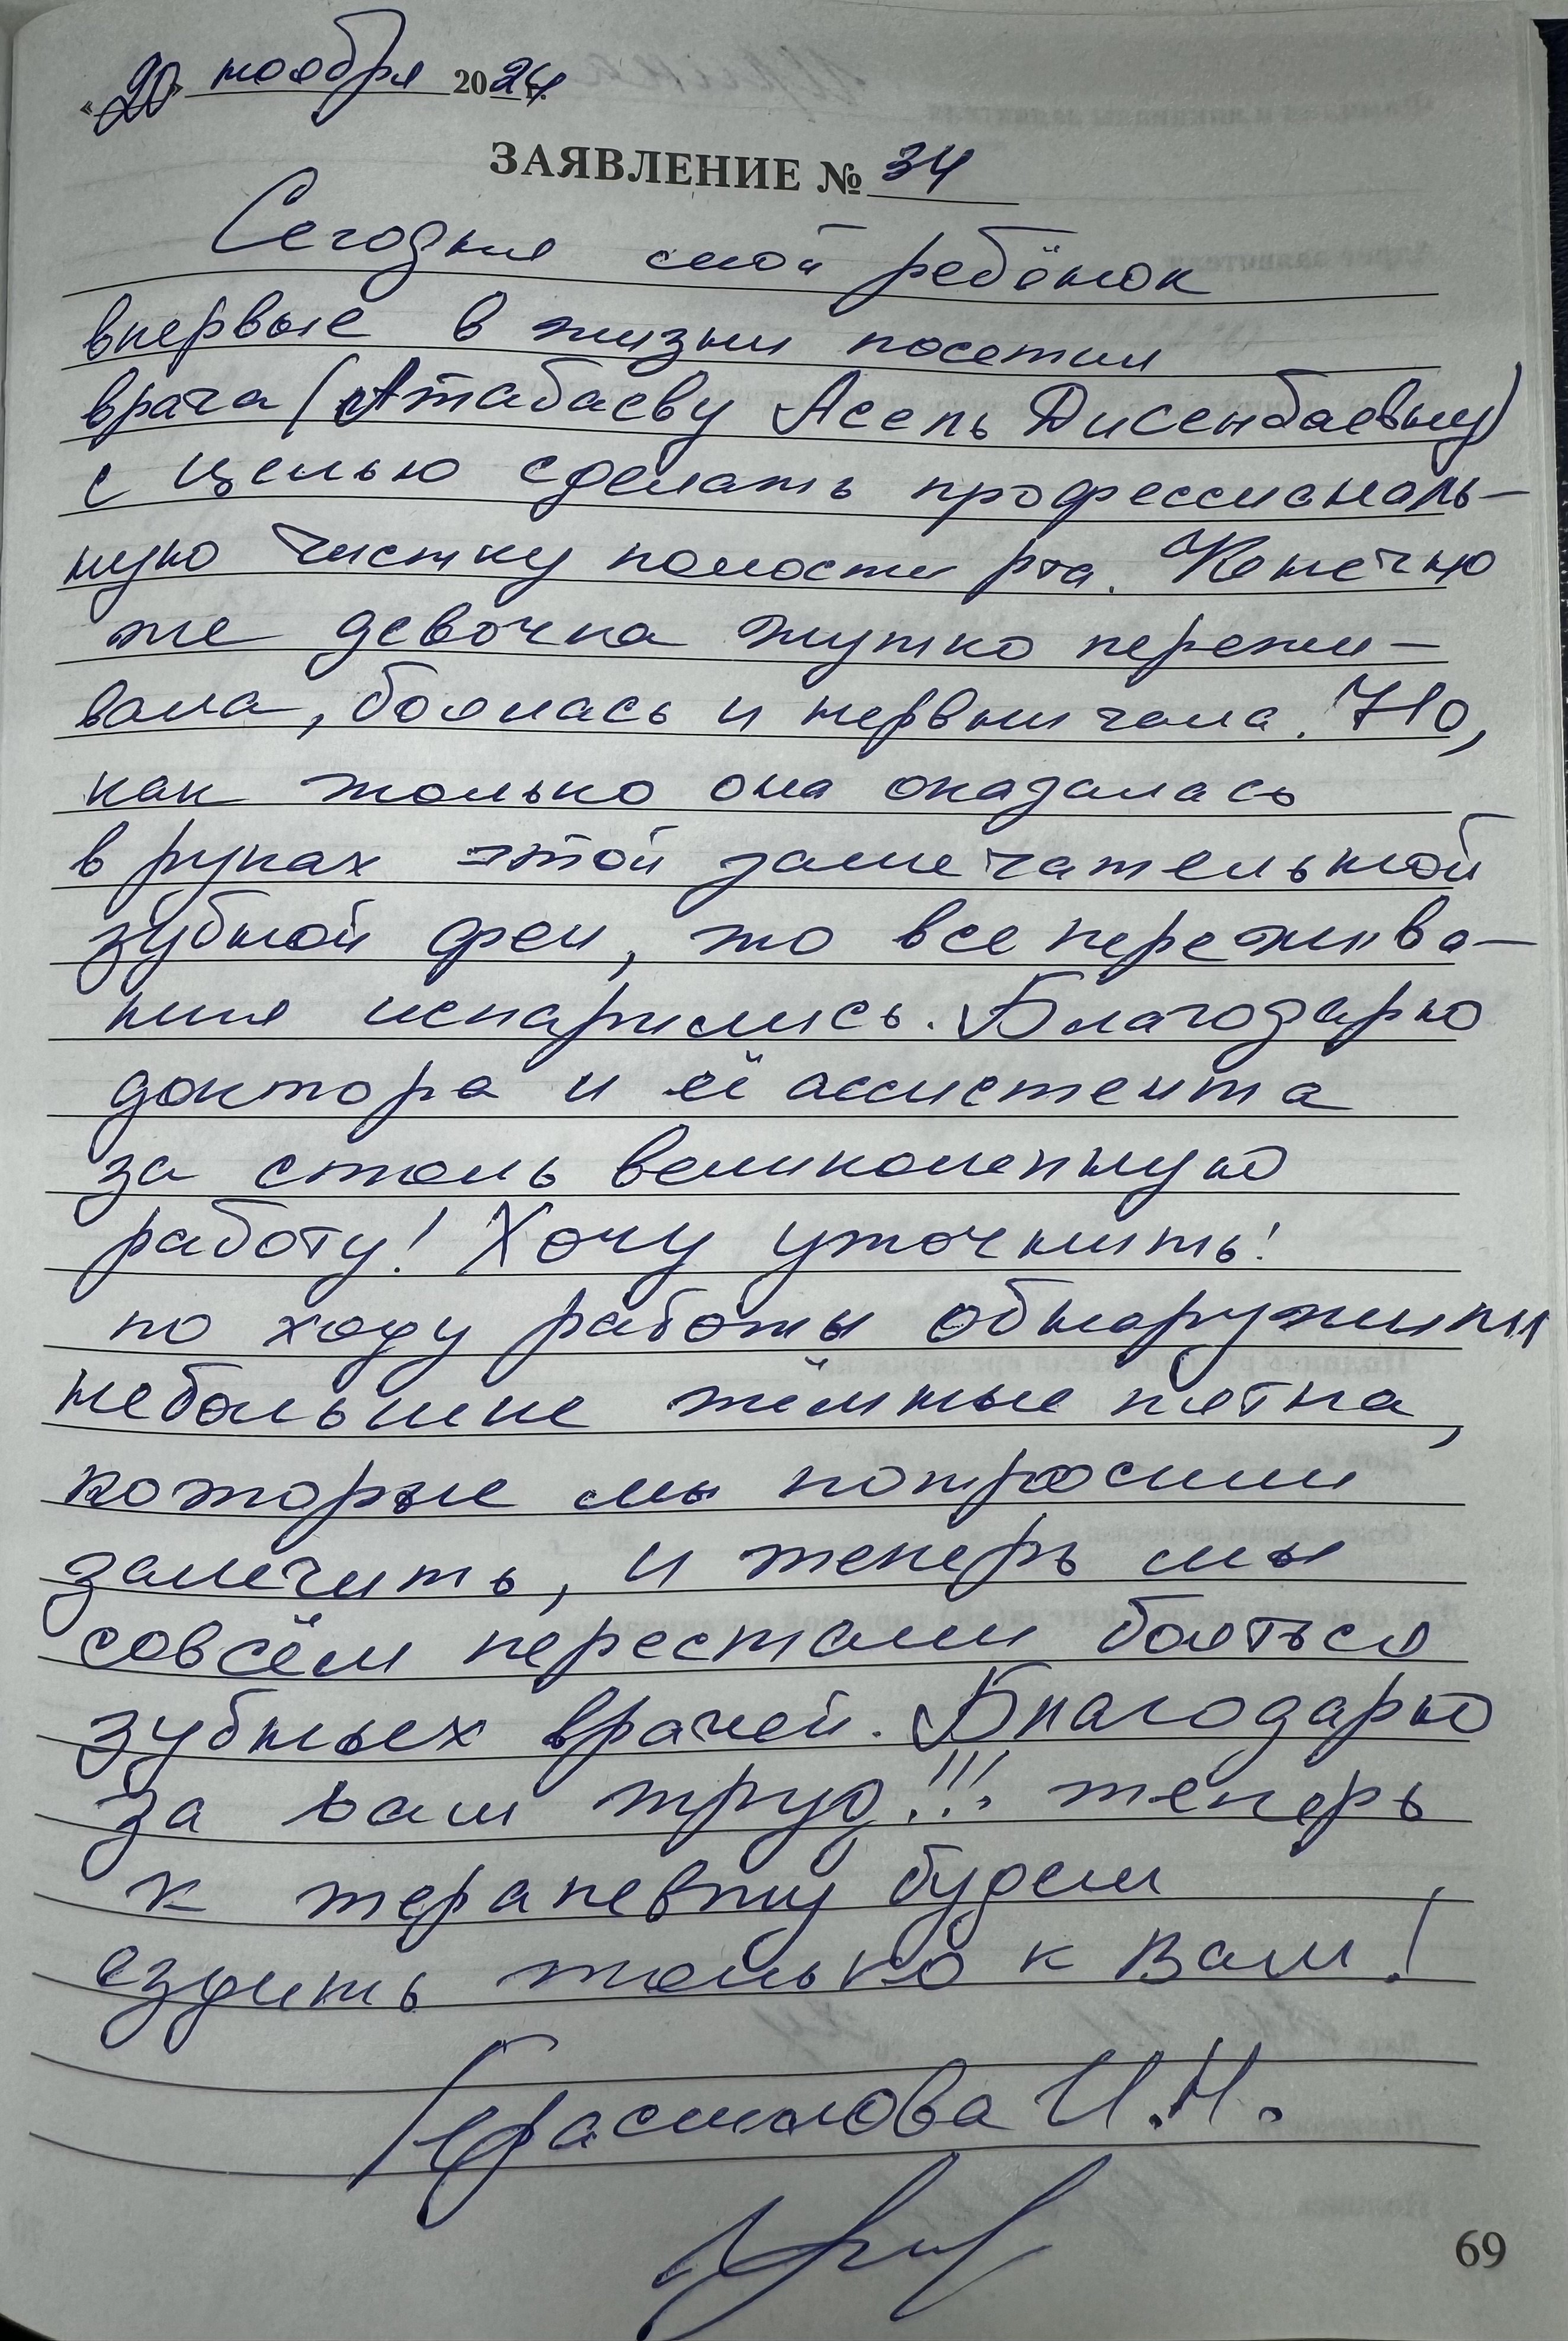 «20» ноября 2024 г.
ЗАЯВЛЕНИЕ № 34
Сегодня мой ребёнок
впервые в жизни посетил
врача (Атабаеву Асель Дисенбаевну)
с целью сделать профессиональ-
ную чистку полости рта. Конечно
же девочка жутко пережи-
вала, боялась и нервничала. Но,
как только она оказалась
в руках этой замечательной
зубной феи, то все пережива-
ния испарились. Благодарю
доктора и её ассистента
за столь великолепную
работу! Хочу уточнить:
по ходу работы обнаружили
небольшие тёмные пятна,
которые мы попросили
залечить, и теперь мы
совсём перестали бояться
зубных врачей. Благодарю
за ваш труд!!! теперь
к терапевту будем
ездить только к Вам!
Герасимова И.Н.
69